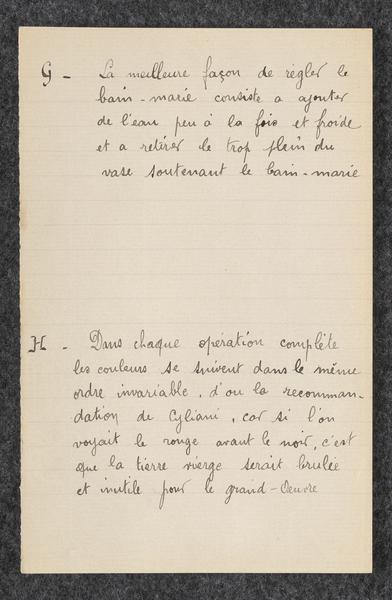 G - La meilleure façon de régler le
bain-marie consiste a ajouter
de l'eau peu à la fois et froide
et a retirer le trop plein du
vase soutenant le bain-marie
H - Dans chaque opération complète
les couleurs se suivent dans le même
ordre invariable, d'ou la recomman-
dation de Cyliani, car si l'on
voyait le rouge avant le noir, c'est
que la tierre vierge serait brulée
et inutile pour le grand-Oeuvre